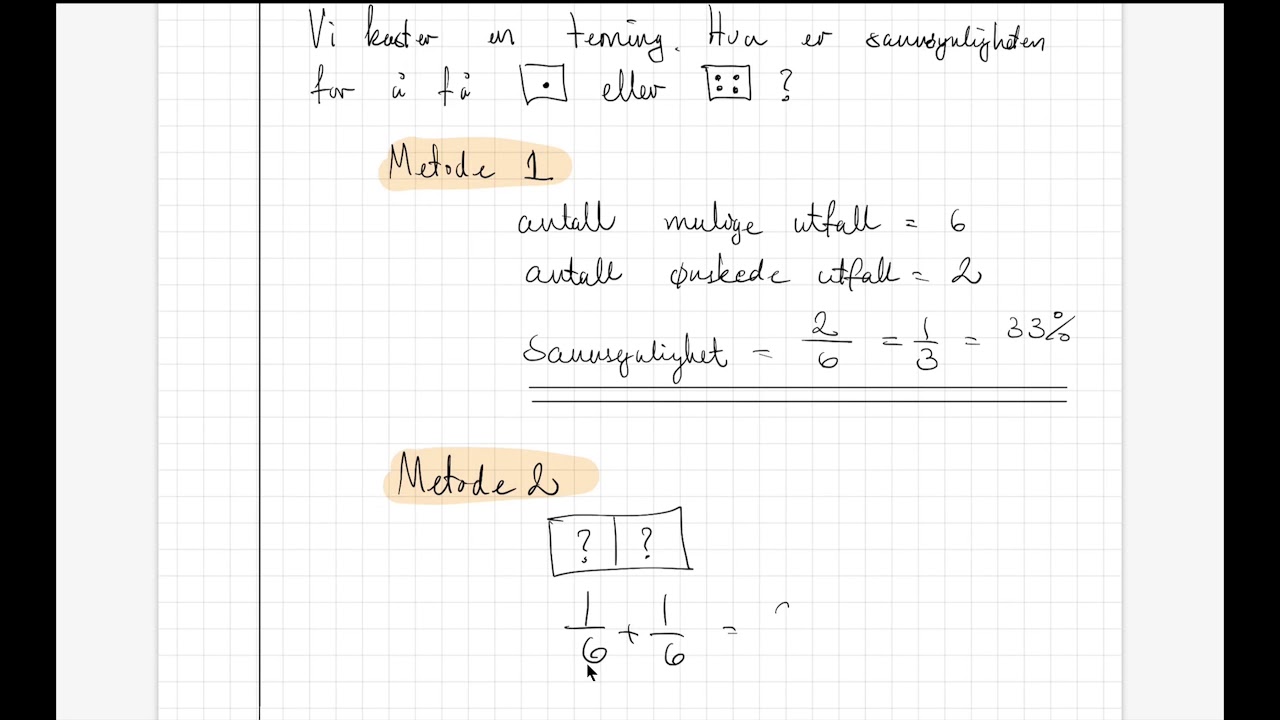 Vi kaster en terning. Hva er sannsynligheten
for å få eller ?
Metode 1
antall mulige utfall = 6
antall ønskede utfall = 2
Sannsynlighet = 2/6 = 1/3 = 33%
Metode 2
? ?
1/6 + 1/6 =